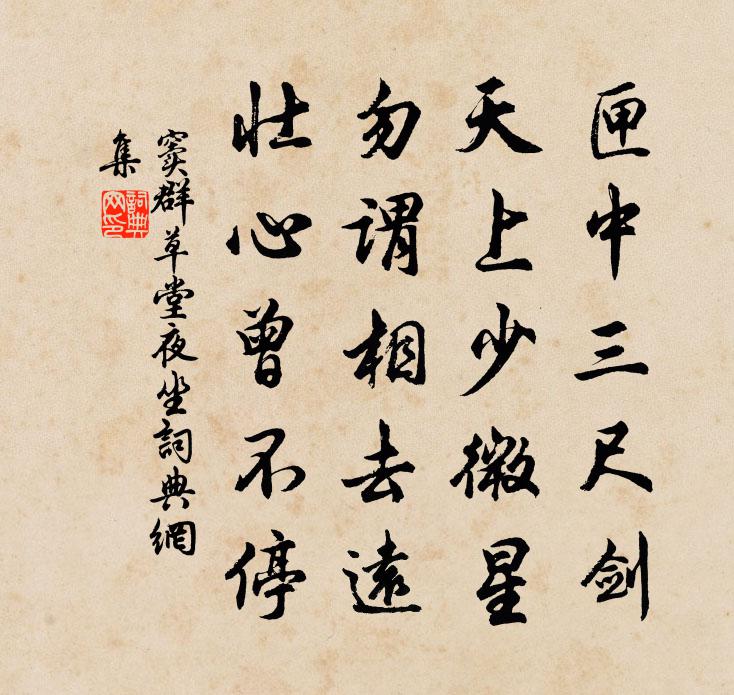 匣中三尺剑
天上少微星
勿谓相去遠
壮心曾不停
窦群草堂夜坐詞典網
集
詞典网印